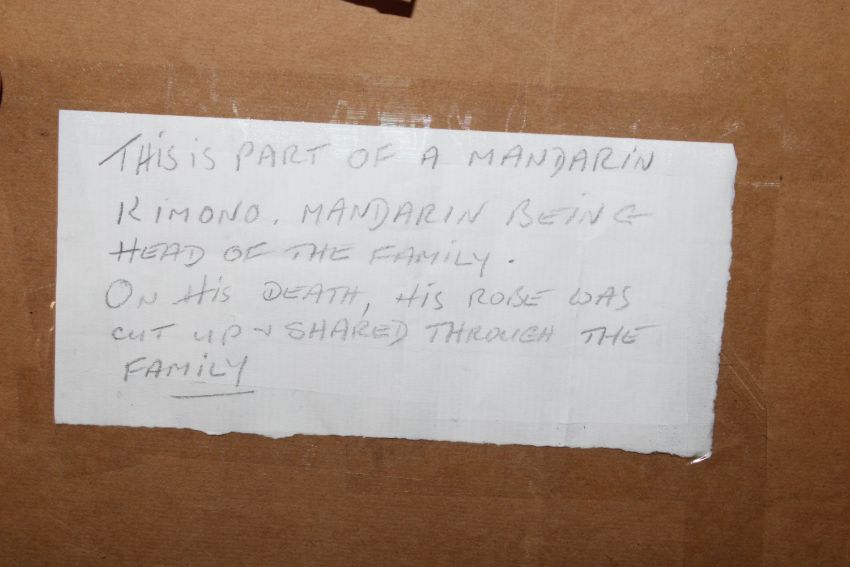 THIS IS PART OF A MANDARIN
KIMONO. MANDARIN BEING
HEAD OF THE FAMILY.
ON HIS DEATH, HIS ROBE WAS
CUT UP & SHARED THROUGH THE
FAMILY